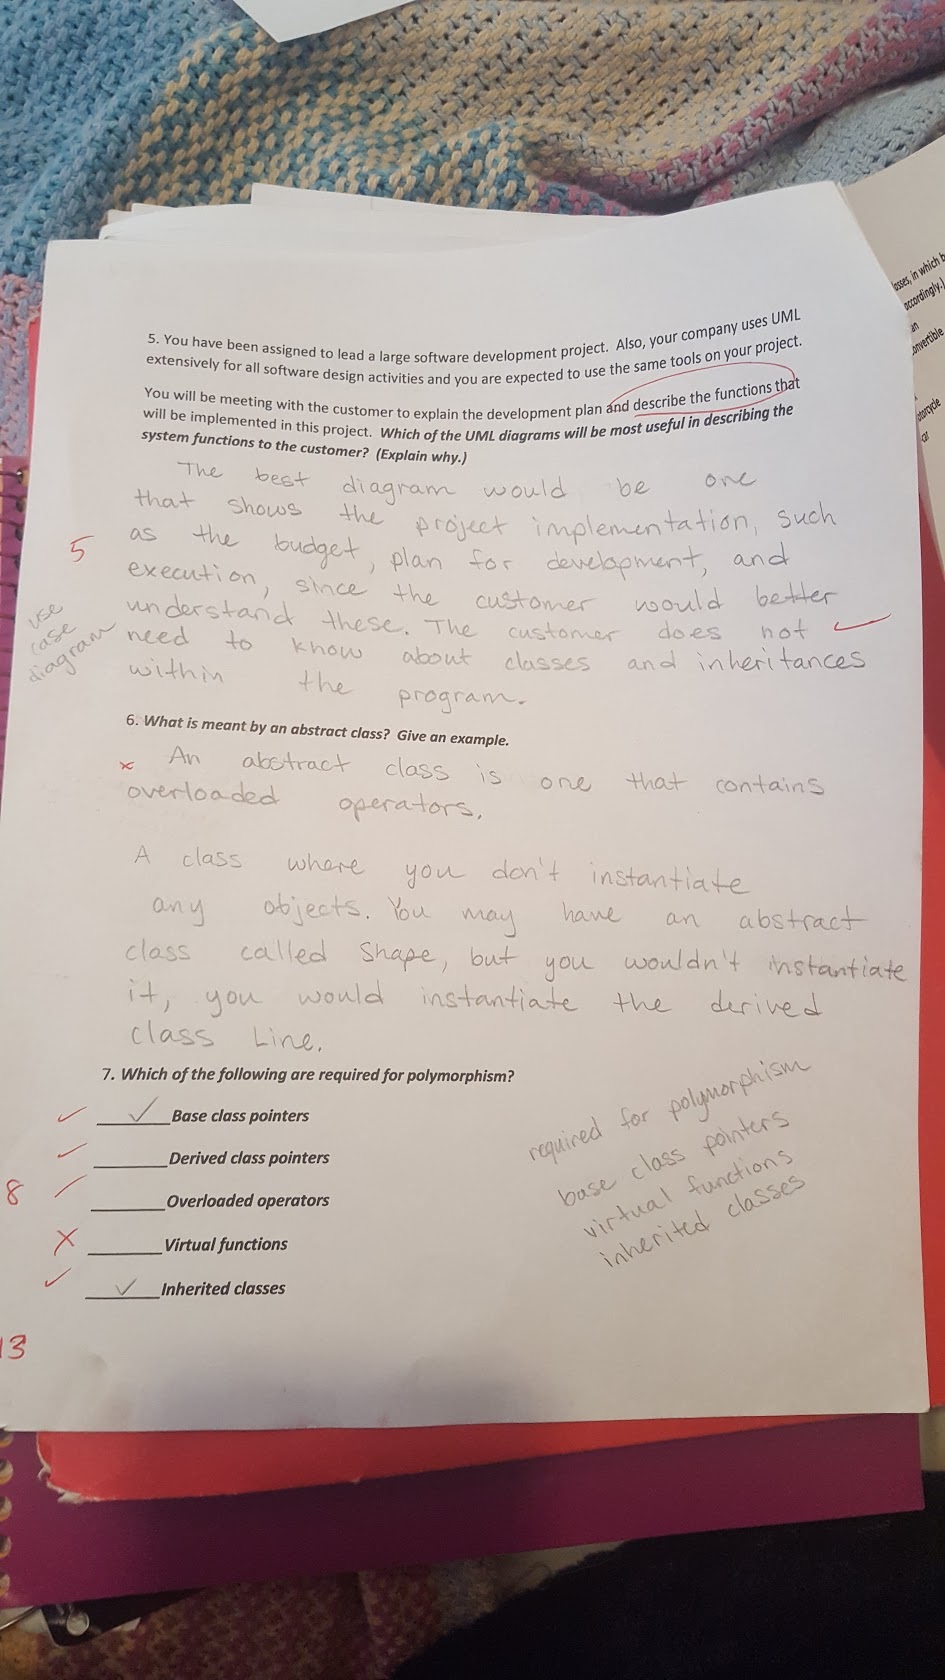 5. You have been assigned to lead a large software development project. Also, your company uses UML
extensively for all software design activities and you are expected to use the same tools on your project.
You will be meeting with the customer to explain the development plan and describe the functions that
will be implemented in this project. Which of the UML diagrams will be most useful in describing the
system functions to the customer? (Explain why.)
The best diagram would be one
that shows the project implementation, such
as the budget, plan for development, and
5
execution, since the customer would better
understand these. The customer does not
need to know about classes and inheritances
within the program.
use
case
diagram
6. What is meant by an abstract class? Give an example.
x An abstract class is one that contains
overloaded operators.
A class where you don't instantiate
any objects. You may have an abstract
class called Shape, but you wouldn't instantiate
it, you would instantiate the derived
class Line.
7. Which of the following are required for polymorphism?
✓ ✓ Base class pointers
✓ Derived class pointers
✓ Overloaded operators
8
X Virtual functions
✓ ✓ Inherited classes
required for polymorphism
base class pointers
virtual functions
inherited classes
13
asses, in which b
accordingly.)
an
onvertible
otorcycle